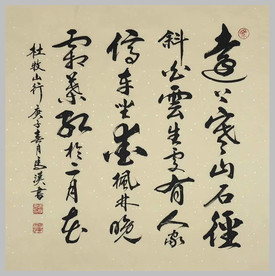 遠上寒山石徑
斜白雲生處有人家
停車坐愛楓林晚
霜葉紅於二月花
杜牧山行 庚子嘉月馬漢書